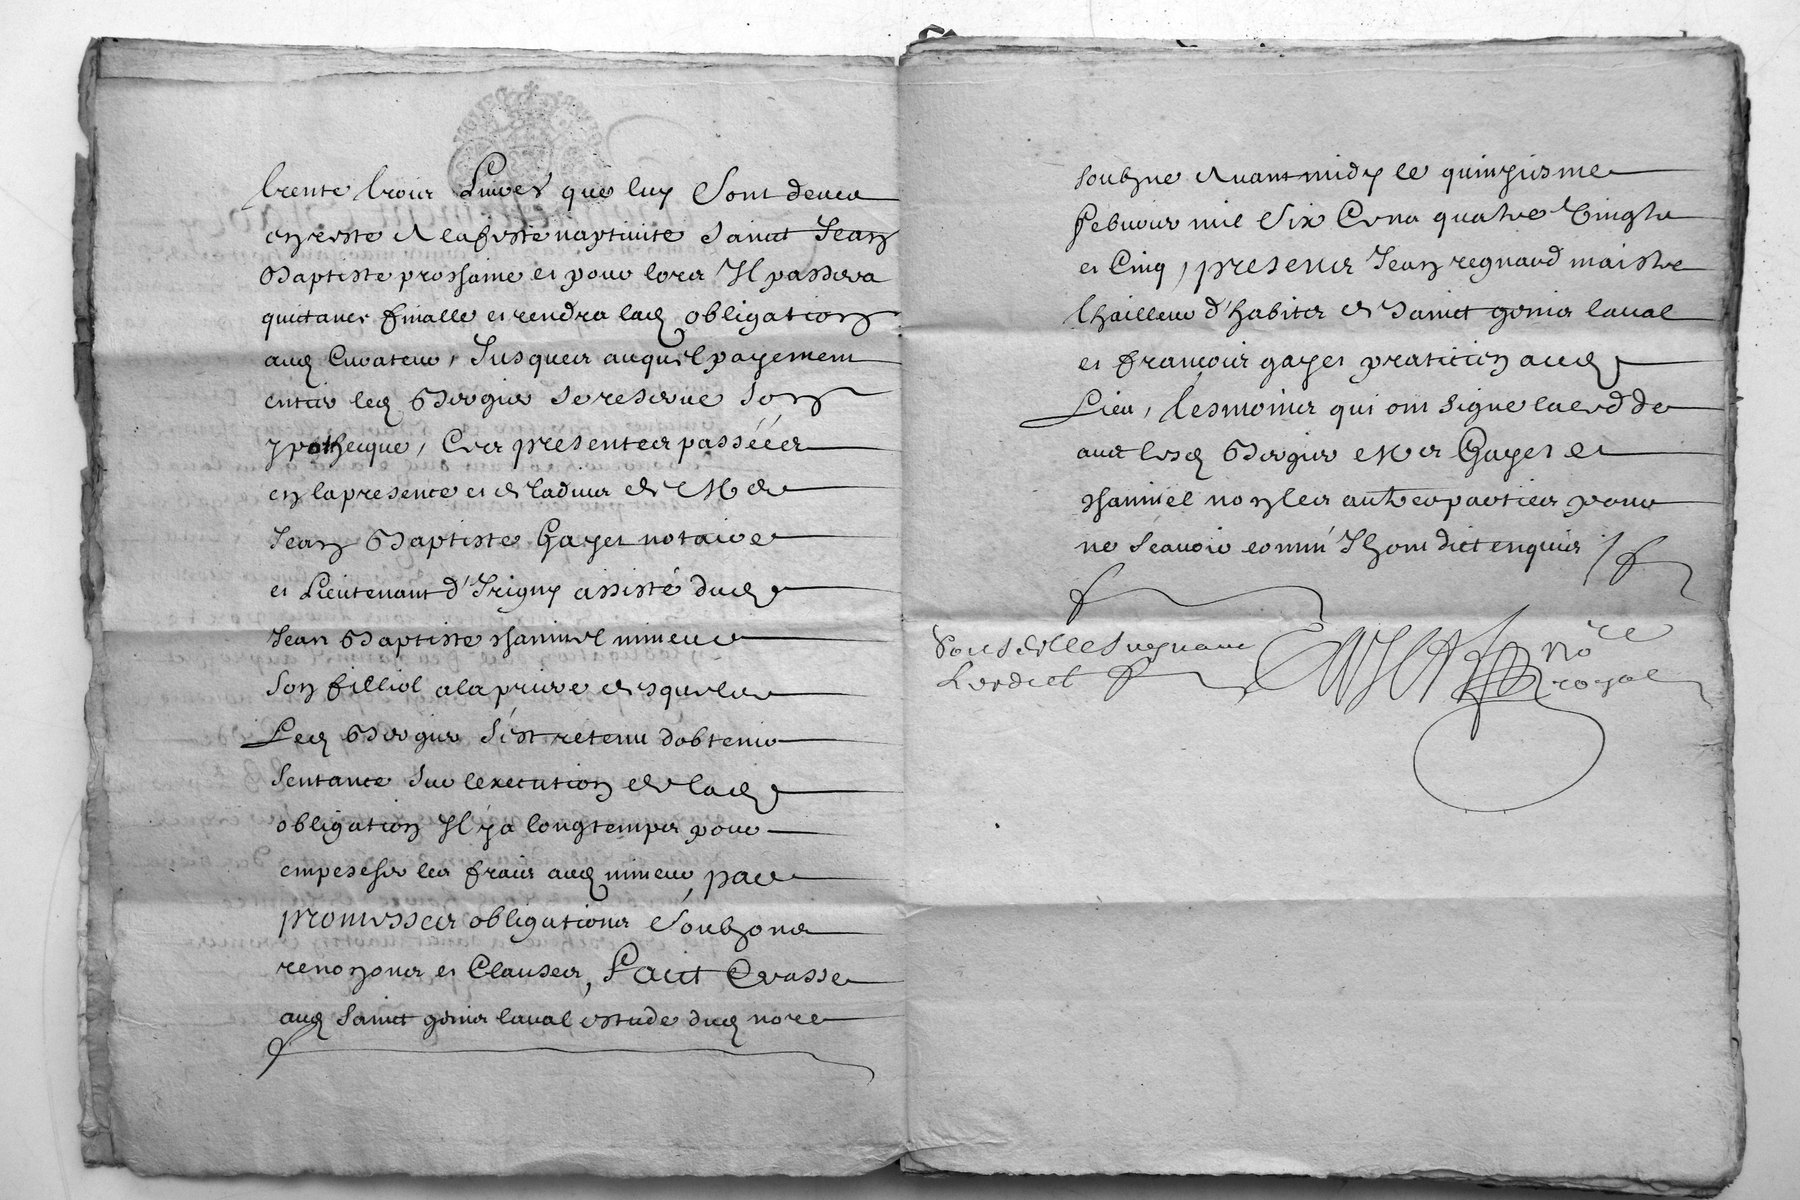 trente trois Livres que luy Sont deues
en reste a la feste nativité Sainct Jean
Baptiste prochaine et pour lors Il passera
quittance finalle et rendra lad obligation
aud Curateur, Jusques auquel payement
entier led Bergier se reserve Son
ypothecque, Ces presentes passéés
en la presence et de l'advis de Me
Jean Baptiste Gayet notaire
et Lieutenant d'Irigny assisté dud
Jean Baptiste hamiel mineur
Son filliol a la priere desquels
Led Bergier s'est retenu dobtenir
Sentance Sur lexecution de lad
obligation Il y a longtemps pour
empescher les frais aud mineur, par
promesses obligations Soubzons
renonons et Clauses, Faict Crasse
aud Sainct genis laval estude dud nore
soubzne avant midy le quinzisme
febvrier mil Six Cens quatre Vingtz
et Cinq, presens Jean regnaud maistre
thailleur d'habits de Sainct genis laval
et françois gayet praticien aud
Lieu, tesmoins qui ont signe la cedde
avec lesd Bergier Mes Gayet et
hamiel non les autres parties pour
ne sçavoir comm' Ilz ont dict enquis
nore
royal